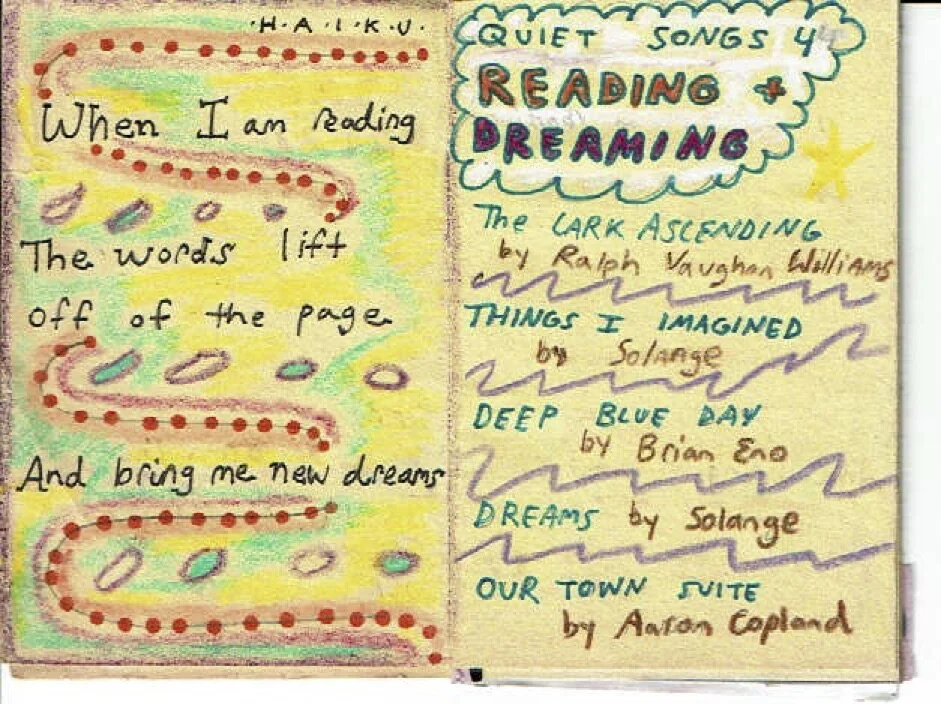 ·H·A·I·K·U·
When I am reading
The words lift
off of the page
And bring me new dreams
QUIET SONGS 4
READING +
DREAMING
The LARK ASCENDING
by Ralph Vaughan Williams
THINGS I IMAGINED
by Solange
DEEP BLUE DAY
by Brian Eno
DREAMS by Solange
OUR TOWN SUITE
by Aaron Copland